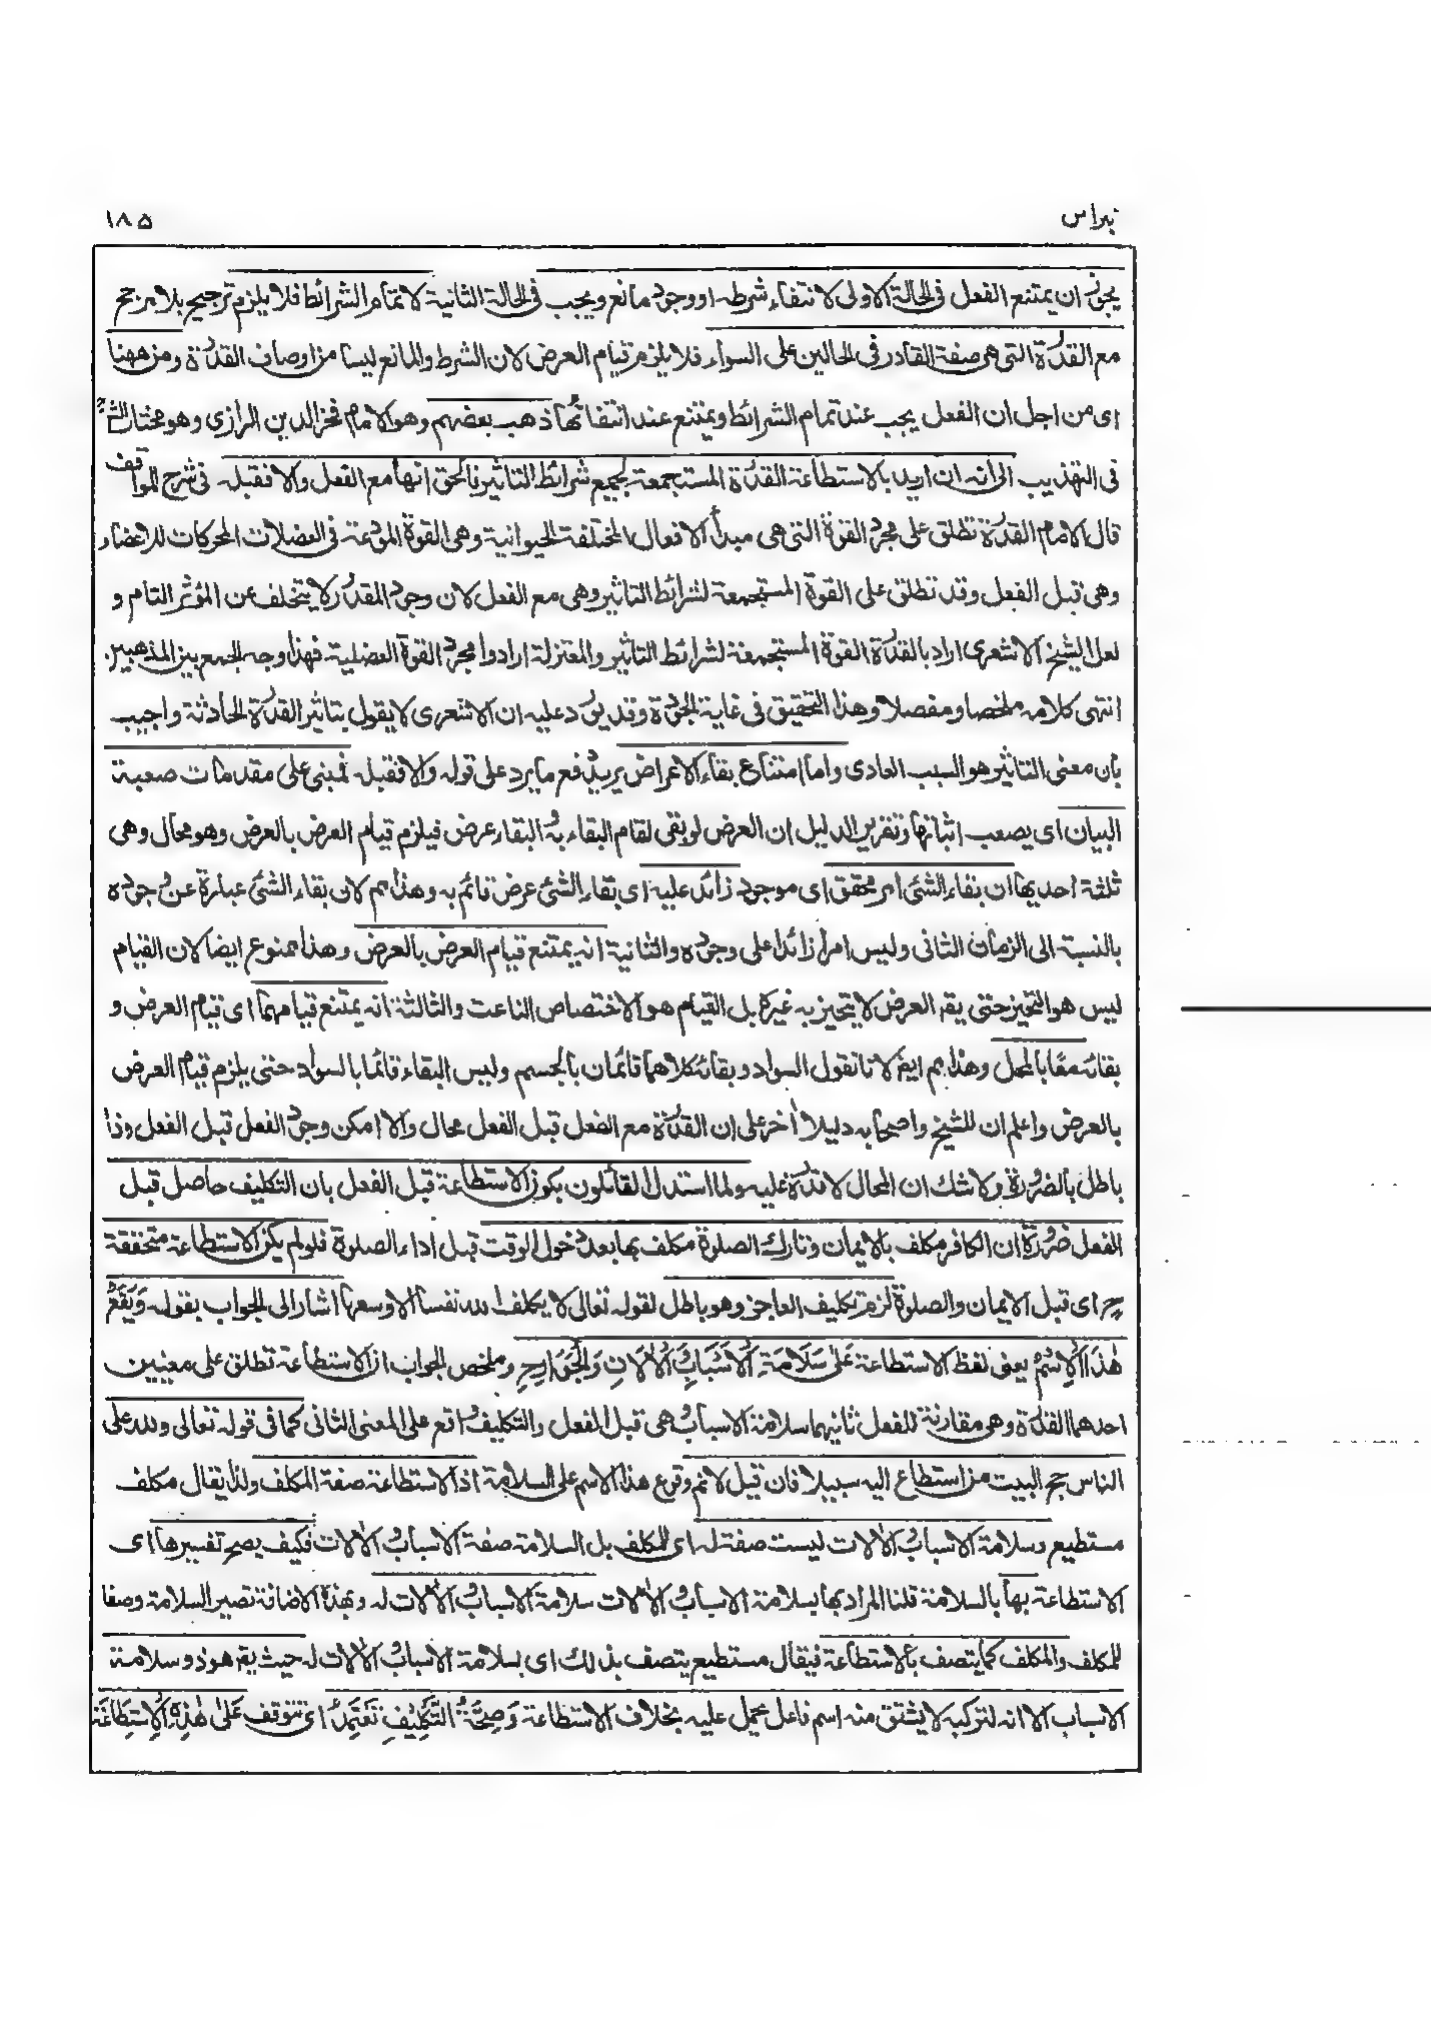 نبراس ١٨٥
يجوز ان يمتنع الفعل فى الحالة الاولى لانتفاء شرطه او وجود مانع ويجب فى الحالة الثانية لاتمام الشرائط فلا يلزم ترجيح بلا مرجح
مع القدرة التى هى صفة القادر فى الحالين على السواء فلا يلزم قيام العرض لان الشرط والمانع ليسا من اوصاف القدرة ومن ههنا
اى من اجل ان الفعل يجب عند تمام الشرائط ويمتنع عند انتفائها ذهب بعضهم وهو الامام فخر الدين الرازى وهو مختار
فى التهذيب الى انه ان اريد بالاستطاعة القدرة المستجمعة لجميع شرائط التاثير فالحق انها مع الفعل والا فقبله فى شرح المواقف
قال الامام القدرة تطلق على مجرد القوة التى هى مبدأ الافعال المختلفة الحيوانية وهى القوة المودعة فى العضلات المحركات للاعضاء
وهى قبل الفعل وقد تطلق على القوة المستجمعة لشرائط التاثير وهى مع الفعل لان وجود المقدور لا يتخلف عن المؤثر التام و
لعل الشيخ الاشعرى اراد بالقدرة القوة المستجمعة لشرائط التاثير والمعتزلة ارادوا مجرد القوة العضلية فهذا وجه الجمع بين المذهبين
انتهى كلامه ملخصا ومفصلا وهذا التحقيق فى غاية الجودة وقد يورد عليه ان الاشعرى لا يقول بتاثير القدرة الحادثة واجيب
بان معنى التاثير هو السبب العادى واما امتناع بقاء الاعراض يريد دفع ما يرد على قوله والا فقبله فمبنى على مقدمات صعبة
البيان اى يصعب اثباتها وتقرير الدليل ان العرض لو بقى لقام البقاء به والبقاء عرض فيلزم قيام العرض بالعرض وهو محال وهى
ثلثة احديها ان بقاء الشئ امر محقق اى موجود زائد عليه اى بقاء الشئ عرض قائم به وهذا مم لان بقاء الشئ عبارة عن وجوده
بالنسبة الى الزمان الثانى وليس امرا زائدا على وجوده والثانية انه يمتنع قيام العرض بالعرض وهذا ممنوع ايضا لان القيام
ليس هو التحيز حتى يقه العرض لا يتحيز به غيره بل القيام هو الاختصاص الناعت والثالثة انه يمتنع قيامهما اى قيام العرض و
بقائه معًا بالمحل وهذا مم ايضا لانا نقول السواد وبقائه كلاهما قائمان بالجسم وليس البقاء قائما بالسواد حتى يلزم قيام العرض
بالعرض واعلم ان للشيخ واصحابه دليلا اخر على ان القدرة مع الفعل قبل الفعل محال والا امكن وجود الفعل قبل الفعل وذا
باطل بالضرورة ولا شك ان المحال لا قدرة عليه ولما استدل القائلون بكون الاستطاعة قبل الفعل بان التكليف حاصل قبل
الفعل ضرورة ان الكافر مكلف بالايمان وتارك الصلوة مكلف بها بعد دخول الوقت قبل اداء الصلوة فلو لم يكن الاستطاعة متحققة
ح اى قبل الايمان والصلوة لزم تكليف العاجز وهو باطل لقوله تعالى لا يكلف الله نفسا الا وسعها اشار الى الجواب بقوله وَيَقَعُ
هٰذَا الْاِسْمُ يعنى لفظ الاستطاعة عَلٰى سَلَامَةِ الْاَسْبَابِ وَالْاٰلَاتِ وَالْجَوَارِحِ وملخص الجواب ان الاستطاعة تطلق على معنيين
احدهما القدرة وهو مقارنة للفعل ثانيهما سلامة الاسباب وهى قبل الفعل والتكليف واقع على المعنى الثانى كما فى قوله تعالى ولله على
الناس حج البيت من استطاع اليه سبيلا فان قيل لا نم وقوع هذا الاسم على السلامة اذ الاستطاعة صفة المكلف ولذا يقال مكلف
مستطيع وسلامة الاسباب والالات ليست صفة له اى للمكلف بل السلامة صفة الاسباب والالات فكيف يصح تفسيرها اى
الاستطاعة بها بالسلامة قلنا المراد بها بسلامة الاسباب والالات سلامة الاسباب والالات له وبهذه الاضافة تصير السلامة وصفا
للمكلف والمكلف كما يتصف بالاستطاعة فيقال مستطيع يتصف بذلك اى بسلامة الاسباب والالات له حيث يقه هو ذو سلامة
الاسباب الا انه لتركبه لا يشتق منه اسم فاعل يحمل عليه بخلاف الاستطاعة وَصِحَّةُ التَّكْلِيْفِ تَعْتَمِدُ اى تتوقف عَلٰى هٰذِهِ الْاِسْتِطَاعَة